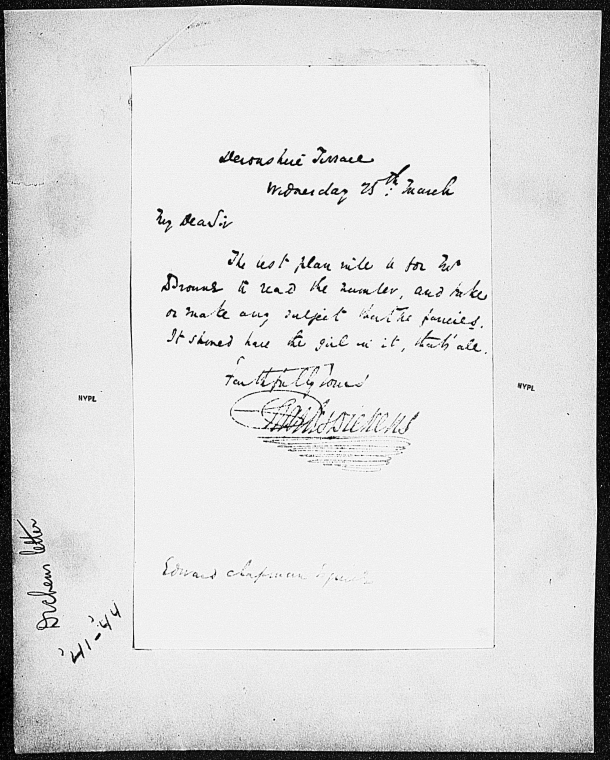 Devonshire Terrace
Wednesday 25th. March
My Dear Sir
The best plan will be for Mr
Browne to read the number, and take
or make any subject that he fancies.
It should have the girl in it, that's all.
Faithfully Yours
Charles Dickens
Edward Chapman Esquire
NYPL
NYPL
Dickens letter
'41-'44